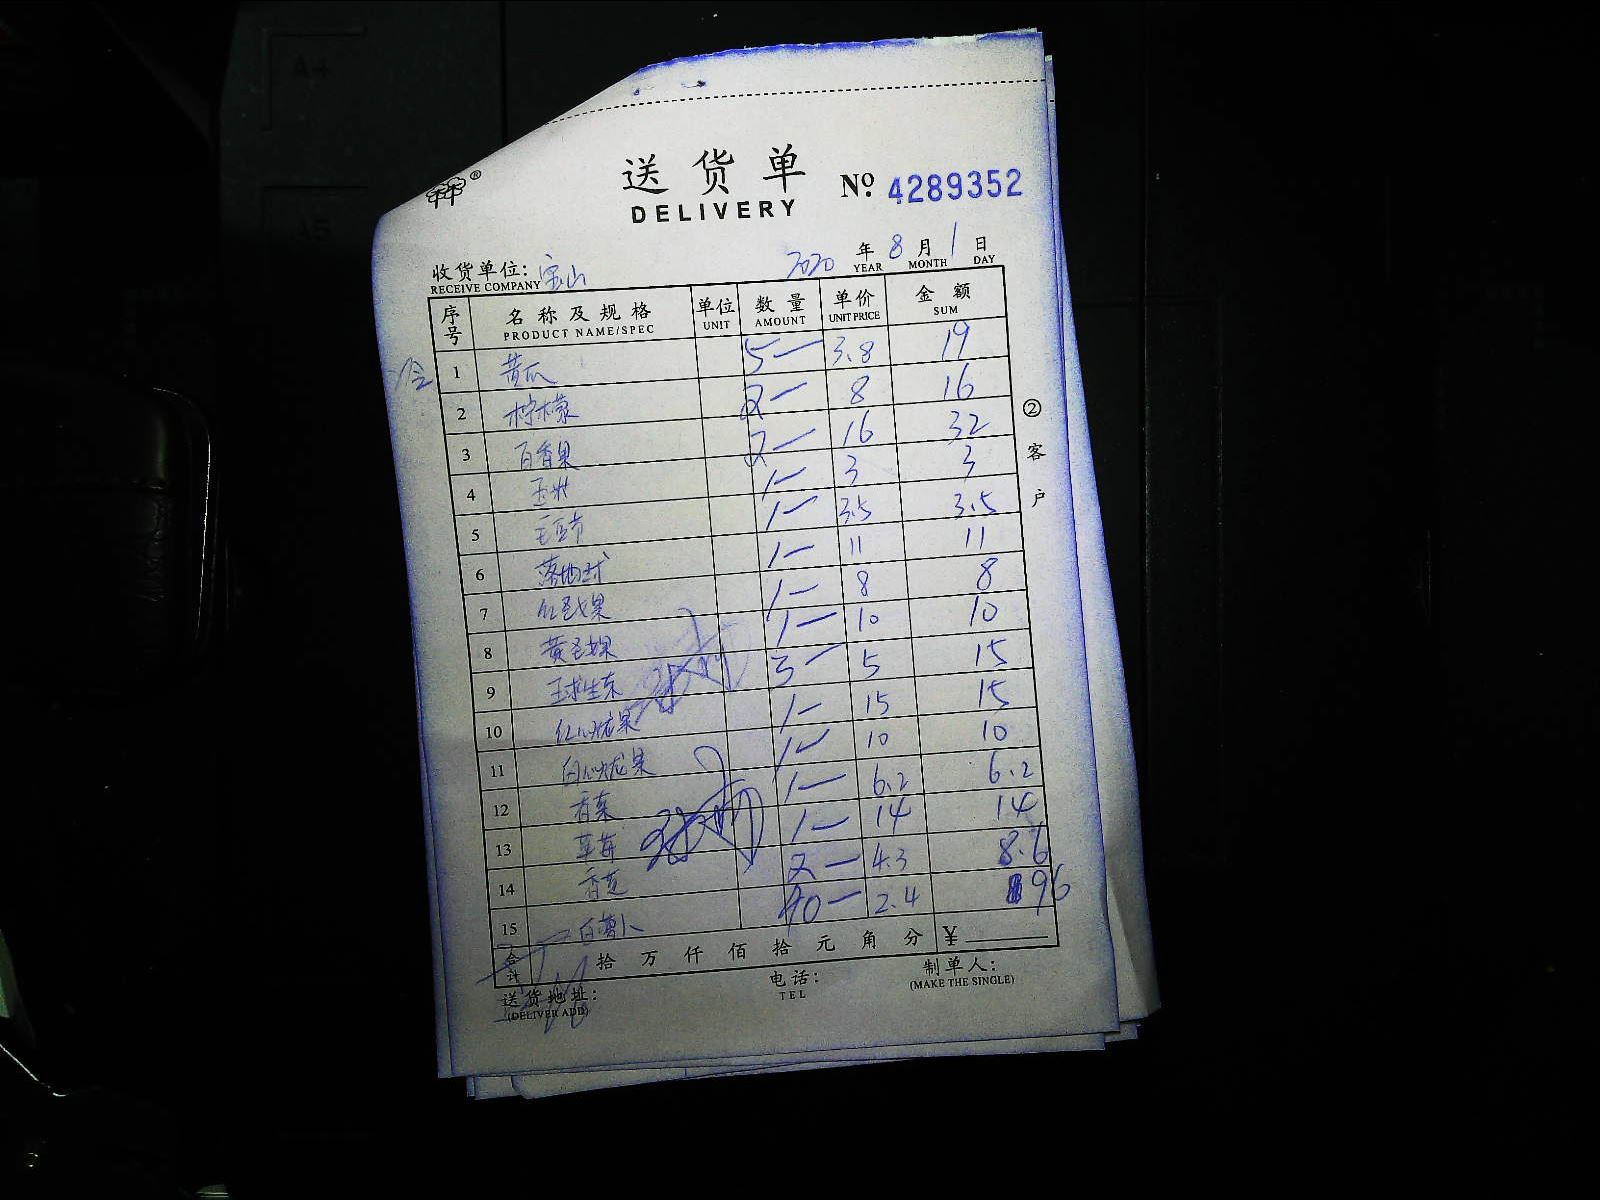 送货单 No. 4289352
DELIVERY
收货单位: 宝山 2020 年 8 月 1 日
RECEIVE COMPANY YEAR MONTH DAY
序号 名称及规格 单位 数量 单价 金额
PRODUCT NAME/SPEC UNIT AMOUNT UNIT PRICE SUM
1 黄瓜 5 — 3.8 19
2 柠檬 2 — 8 16
3 百香果 2 — 16 32
4 玉米 1 — 3 3
5 毛豆节 1 — 3.5 3.5
6 1 — 11 11
7 红圣女果 1 — 8 8
8 黄圣女果 1 — 10 10
9 球生东 3 — 5 15
10 红心火龙果 1 — 15 15
11 白心火龙果 1 — 10 10
12 香菜 1 — 6.2 6.2
13 草莓 1 — 14 14
14 香芝 2 — 4.3 8.6
15 白萝卜 40 — 2.4 96
合计 拾 万 仟 佰 拾 元 角 分 ¥
送货地址: 电话: 制单人:
(DELIVER ADD) TEL (MAKE THE SINGLE)
② 客户